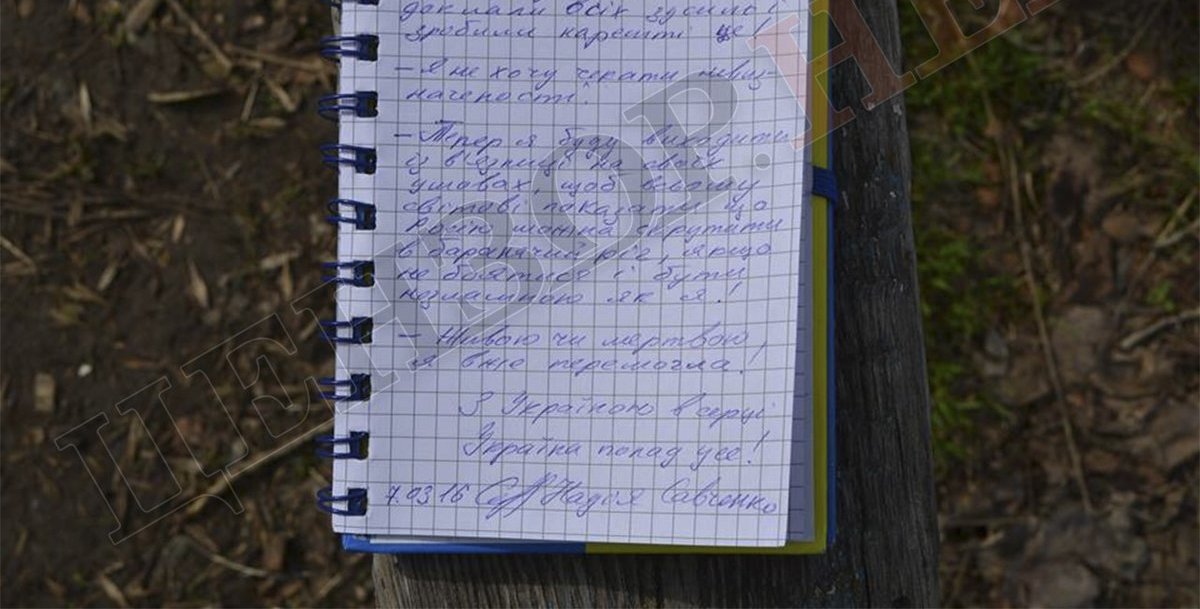 доклали всіх зусиль і
зробили нарешті це!
– Я не хочу чекати невиз-
наченості!
– Тепер я буду виходити
із в'язниці на своїх
умовах, щоб всьому
світові показати що
Росію можна скрутити
в баранячий ріг, якщо
не боятися і бути
незламною як я!
– Живою чи мертвою
я вже перемогла!
З Україною в серці
Україна понад усе!
7.03.16 Надія Савченко
ЦЕНЗОР.НЕ